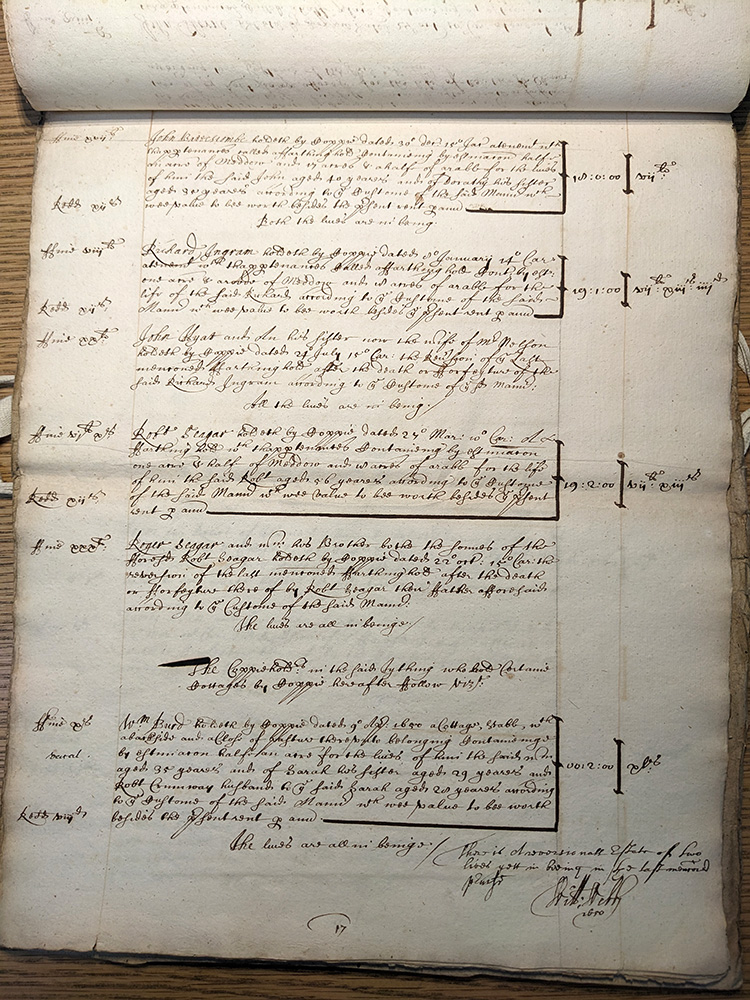 ffine xvij s
John Bidecombe holdeth by Coppie dated 30o Dec 15o Jac a tenemt wth
thappurtenances called a ffarthing hold Conteineing by estimacon half
an acre of Meddow and 17 acres & a half of arable for the lives
of him the said John aged 40 yeares and of Dorathy his sister
aged 30 yeares according to ye Custome of the said Mannor wch
wee value to bee worth besides the p'sent rent p annu
18:0:00
vij li
Redd xij s
Both the lives are in being
ffine viij li
Richard Ingram holdeth by Coppie dated January 14o Car:
a tenemt wth thappurtenances Called a ffarthing hold Cont by est:
one acre & a roode of Meddow and acres of arable for the
life of the said Richard according to ye Custome of the said
Mannr wch wee value to bee worth besides ye p'sent rent p annu
19:1:00
vij li xiij s iiij d
Redd xij s
ffine xx li
John Hyat and An his sister now the wife of Mr Nelson
holdeth by Coppie dated July 15o Car: the Revercon of ye last
mentioned ffarthing hold after the death or fforfeyture of the
said Richard Ingram according to ye Custome of ye sd Mannr:
All the lives are in being:
ffine vj li x s
Robt Seagar holdeth by Coppie dated 25o Mar: Car: A
ffarthing hold wth thappurtenances Conteineing by estimacon
one acre & half of Meddow and acres of arable for the life
of him the said Robt aged 56 yeares according to ye Custome
of the said Mannr wch wee value to bee worth besides ye p'sent
rent p annu
19:2:00
vij li xiij s
Redd xij s
ffine xxx li
Roger Seagar and Wm his Brother bothe the sonnes of the
fforesd Robt Seagar holdeth by Coppie dated 22o Oct: 15o Car: the
revercion of the last mentioned ffarthing hold after the death
or fforfeyture there of by Robt Seagar their ffather afforesaid
according to ye Custome of the said Mannr:
The lives are all in beinge/
The Coppiehold rs in the said Tything who hold Certaine
Cottages by Coppie hereafter ffollow vizt.
ffine x s
Wm Burd holdeth by Coppie dated 9o Apr: 1650 a Cottage, Stable, wth
a backside and a Close of pasture thereunto belonging Conteineinge
by estimacon half an acre for the lives of him the said Wm
aged 35 yeares and of Sarah his sister aged 29 yeares and
Robt Cunway husband to ye said Sarah aged 28 yeares according
to ye Custome of the said Mannr wch wee value to bee worth
besides the p'sent rent p annu
00:2:00
xl s
Redd
The lives are all in beinge/
There is A revercionall Estate of two
lives yett in beeing in the last menconed
Will: Webb
1650
17